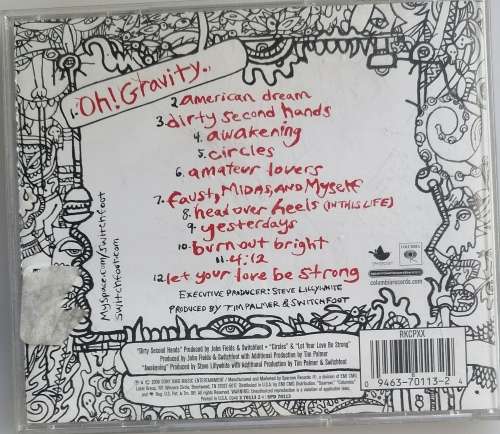 1. Oh! Gravity.
2. american dream
3. dirty second hands
4. awakening
5. circles
6. amateur lovers
7. Faust, MIDAS, AND MYself
8. head over heels (IN THIS LIFE)
9. yesterdays
10. burn out bright
11. 4:12
12. let your love be strong
EXECUTIVE PRODUCER: STEVE LILLYWHITE
PRODUCED BY TIM PALMER & SWITCHFOOT
MySpace.com/Switchfoot
Switchfoot.com
COLUMBIA
columbiarecords.com
"Dirty Second Hands" Produced by John Fields & Switchfoot • "Circles" & "Let Your Love Be Strong"
Produced by John Fields & Switchfoot with Additional Production by Tim Palmer
"Awakening" Produced by Steve Lillywhite with Additional Production by Tim Palmer & Switchfoot
RKCPXX
0 9463-70113-2 4